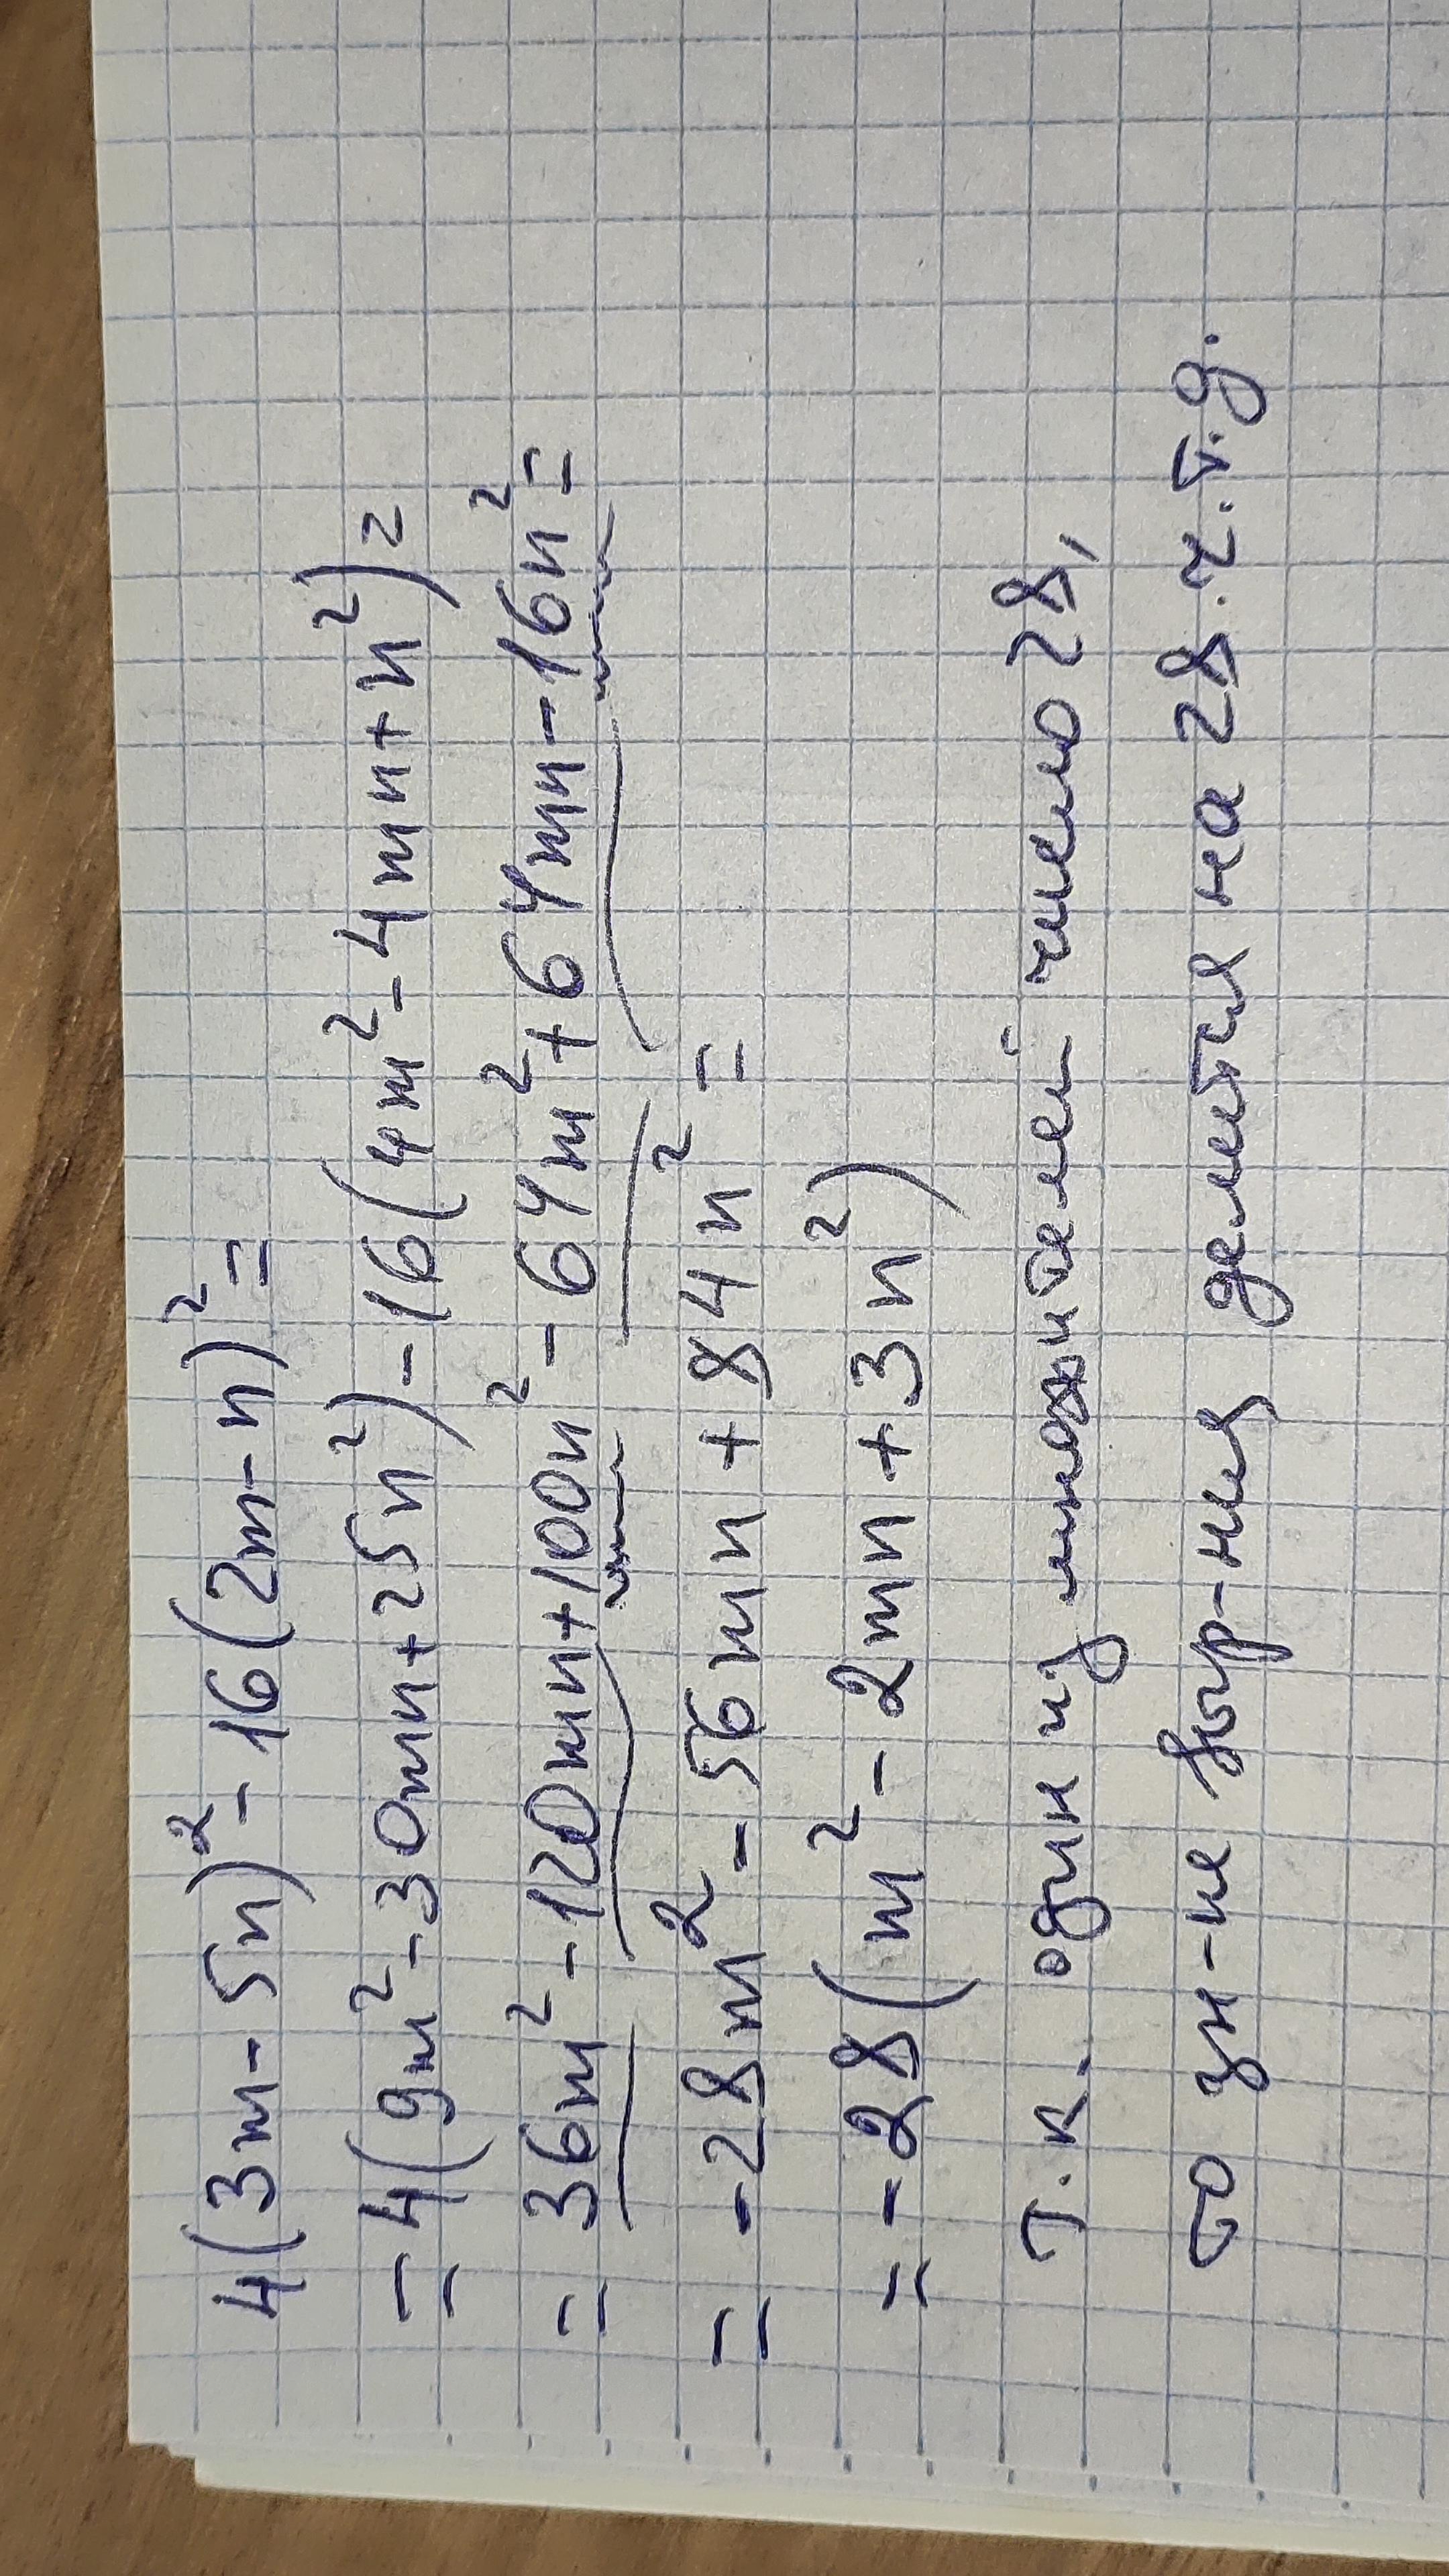 4(3m-5n)²-16(2m-n)²=
=4(9m²-30mn+25n²)-16(4m²-4mn+n²)=
=36m²-120mn+100n²-64m²+64mn-16n²=
=-28m²-56mn+84n²=
=-28(m²-2mn+3n²)
т.к. один из множителей число 28,
то зн-ие выр-ния делится на 28.ч.т.д.